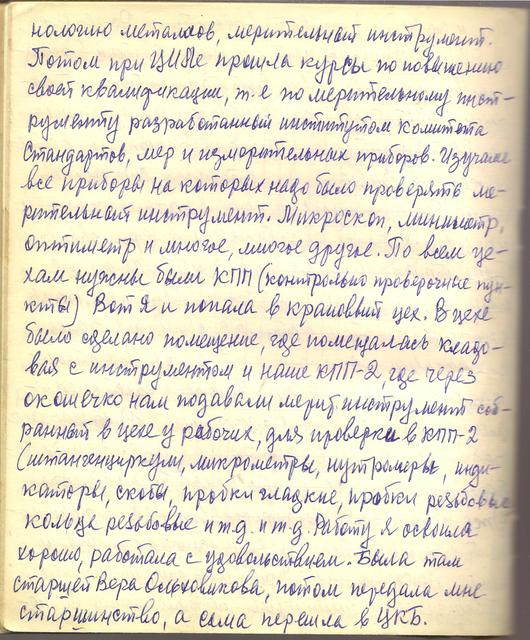 нологию металлов, мерительный инструмент.
Потом при ЦИЛе прошла курсы по повышению
своей квалификации, т.е по мерительному инст-
рументу разработанный институтом комитета
стандартов, мер и измерительных приборов. Изучали
все приборы на которых надо было проверять ме-
рительный инструмент. Микроскоп, миниметр,
оптиметр и многое, многое другое. По всем це-
хам нужны были КПП (контрольно проверочные пун-
кты) Вот Я и попала в крановый цех. В цехе
было сделано помещение, где помещалась кладо-
вая с инструментом и наше КПП-2, где через
окошечко нам подавали мерит. инструмент соб-
ранный в цехе у рабочих, для проверки в КПП-2
(штангенциркули, микрометры, нутромеры, инди-
каторы, скобы, пробки гладкие, пробки резьбовые
кольца резьбовые и т.д. и т.д. Работу я освоила
хорошо, работала с удовольствием. Была там
старшей Вера Ольховикова, потом передала мне
старшинство, а сама перешла в ЦКБ.